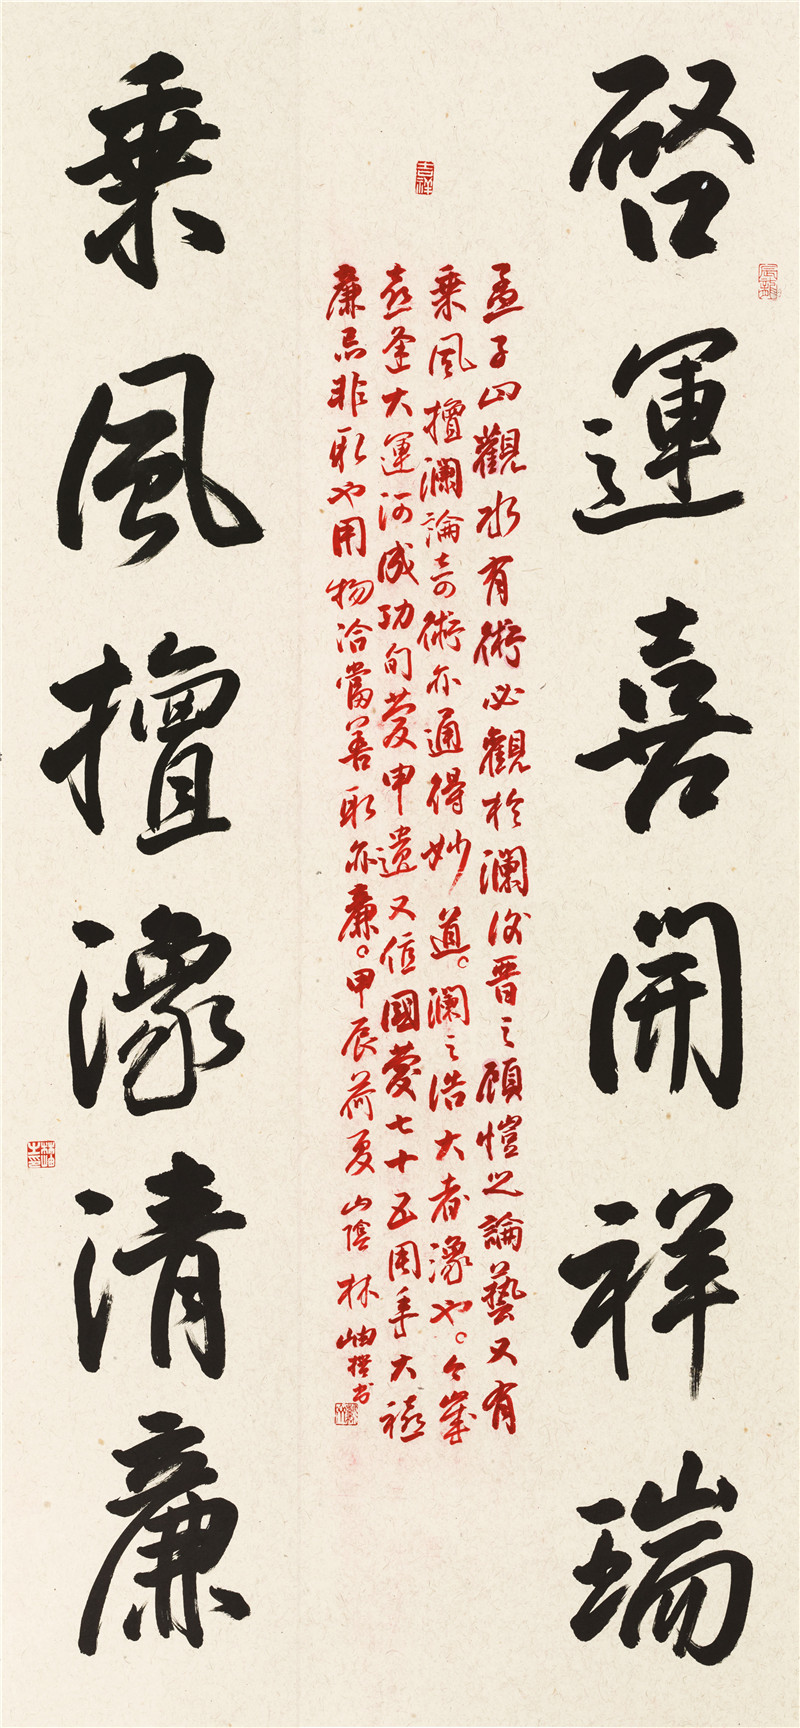 啓運喜開祥瑞
孟子曰觀水有術必觀於瀾後晋之顧愷之論藝又有
乘風擅瀾論奇術亦通得妙道。瀾之浩大者濠也。今歲
喜逢大運河成功句慶申遺又值國慶七十五周年大禧
廉忌非取也用物洽當善取亦廉。甲辰荷夏山陰林岫撰书
乘風擅濠清廉
吉祥